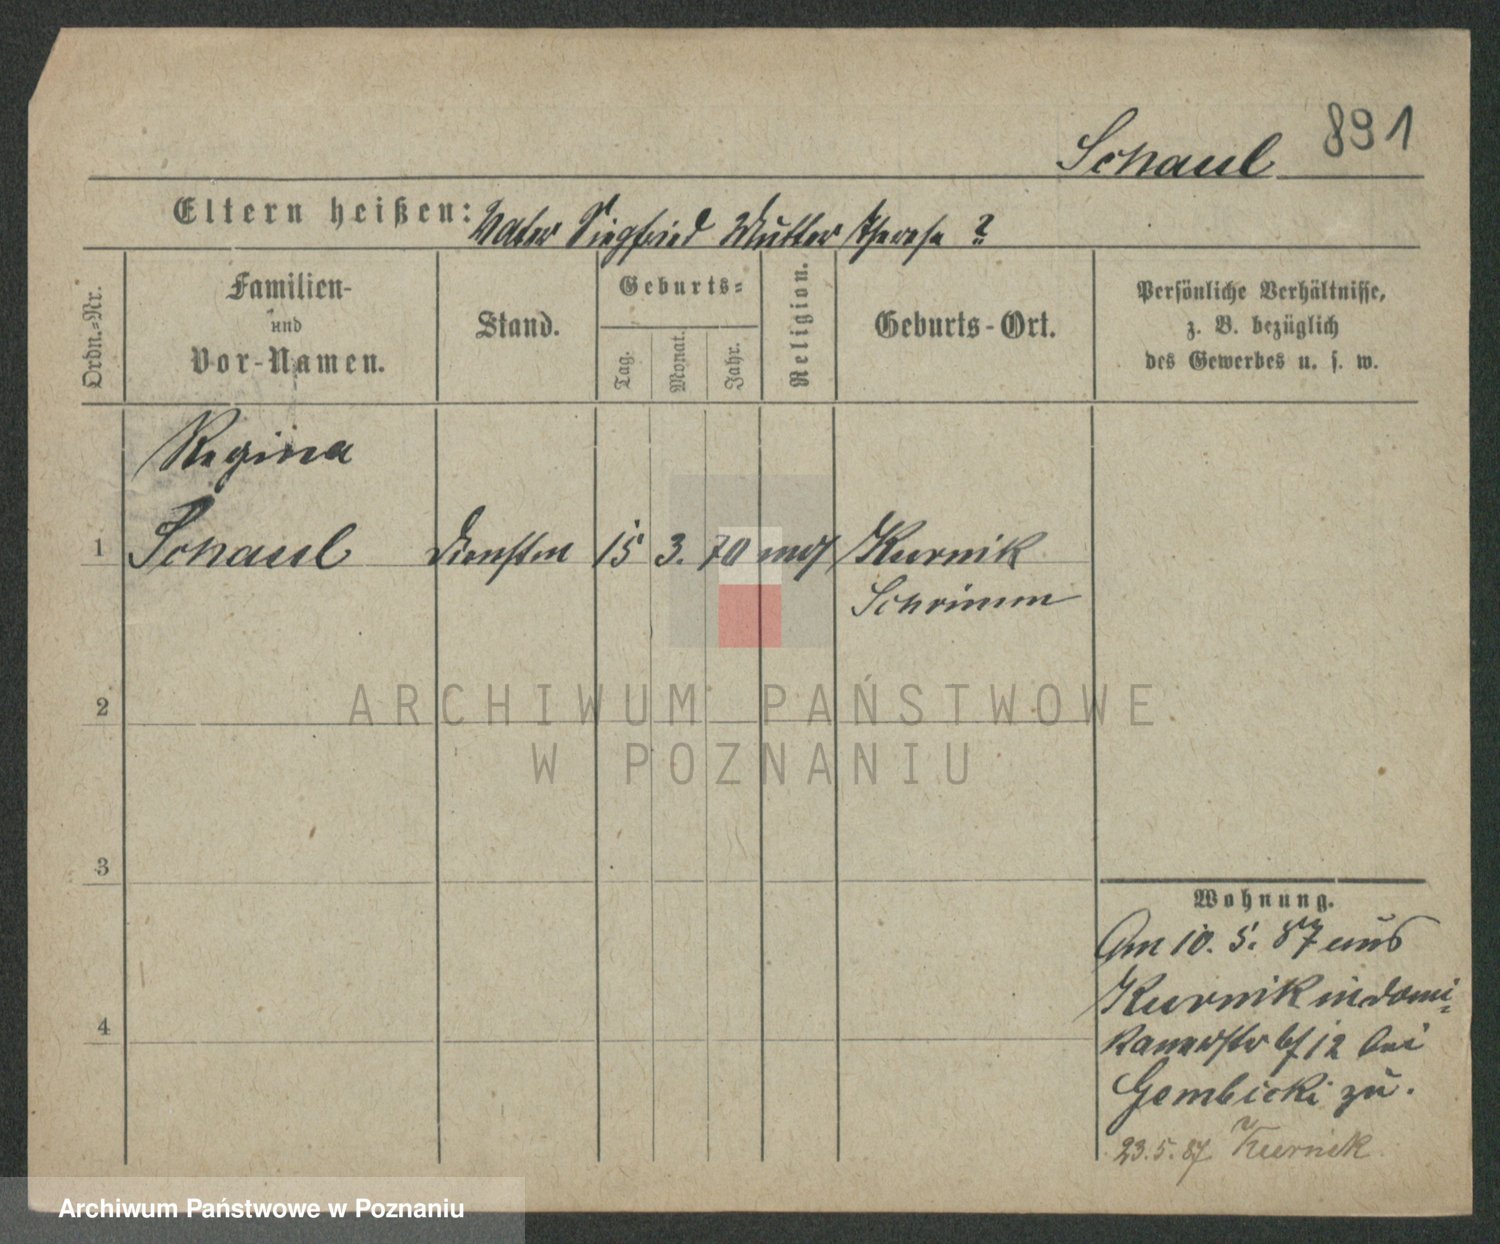 891
Schaul
Eltern heißen: Vater Siegfried Mutter Therese ?
Ordn.=Nr.
Familien-
und
Vor-Namen.
Stand.
Geburts=
Tag.
Monat.
Jahr.
Religion.
Geburts-Ort.
Persönliche Verhältnisse,
z. B. bezüglich
des Gewerbes u. s. w.
Regina
1 Schaul 15 3. 70 mos Kurnik
Schrimm
2
3
4
ARCHIWUM PAŃSTWOWE
W POZNANIU
Wohnung.
Am 10. 5. 87 aus
Kurnik in domi=
kanerstr 12 bei
Gembicki zu.
23.5.87 Kurnik
Archiwum Państwowe w Poznaniu